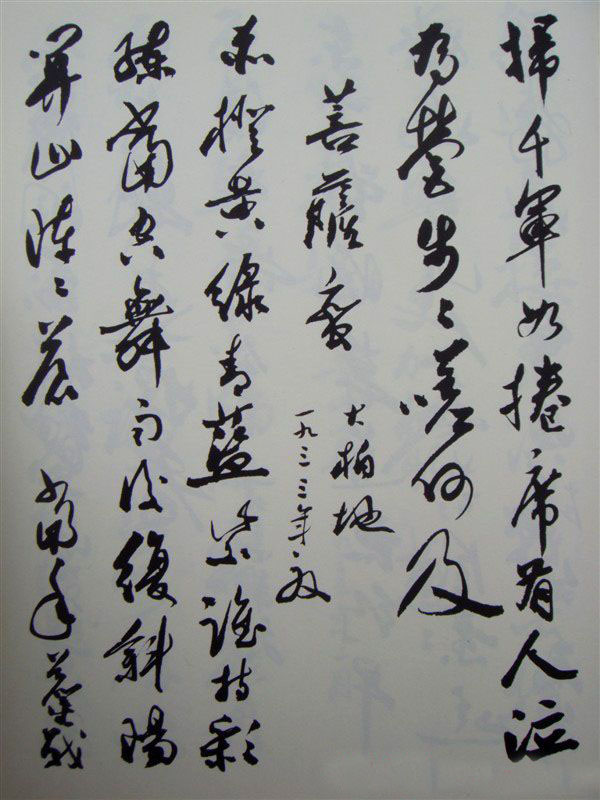 掃千軍如捲席有人泣
為營步〻嗟何及
菩薩蠻
大柏地
一九三三年夏
赤橙黄綠青藍紫誰持彩
練當空舞雨後復斜陽
關山陣〻蒼 當年鏖戰